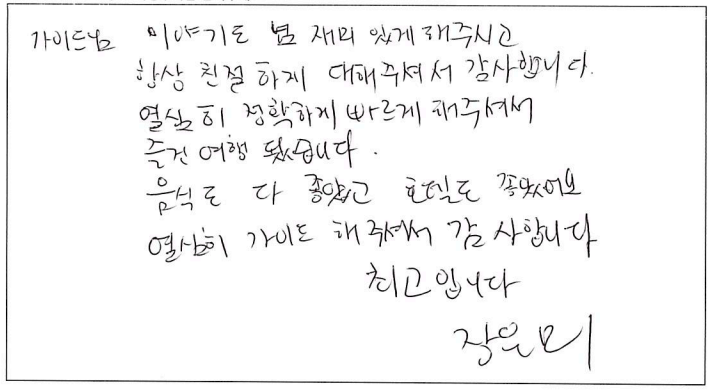 가이드님 이야기도 넘 재미 있게 해주시고
항상 친절 하게 대해주셔서 감사합니다.
열심히 정확하게 빠르게 해주셔서
즐건 여행 됐습니다.
음식도 다 좋았고 호텔도 좋았어요
열심히 가이드 해 주셔서 감사합니다
최고입니다